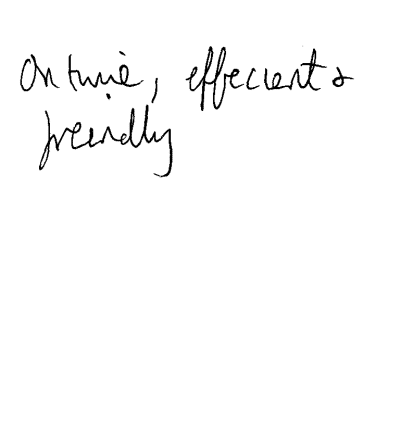 On time, effecient &
freindly